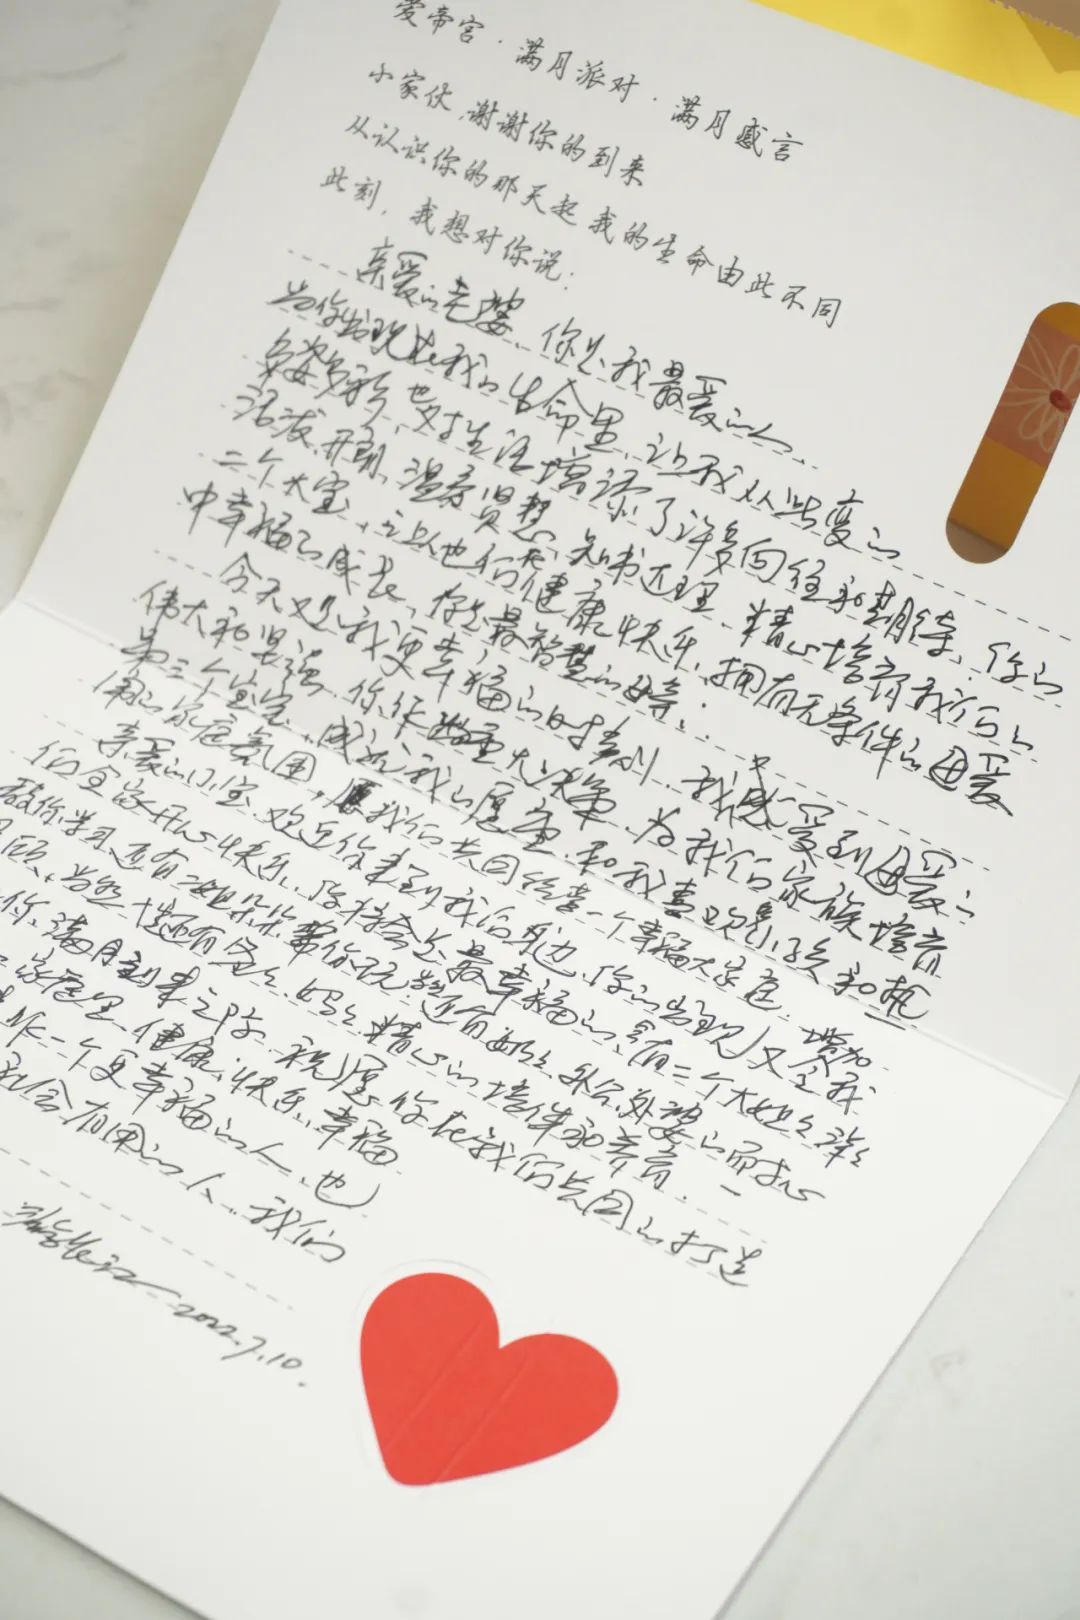 爱帝宫·满月派对·满月感言
小家伙,谢谢你的到来
从认识你的那天起 我的生命由此不同
此刻,我想对你说:
亲爱的老婆、你是我最爱的人、
为你出现在我的生命里、让我从此变的
多姿多彩、也对生活增添了许多向往和期待、你的
活泼、开朗、温柔贤慧、知书达理、精心培育我们的
二个大宝、让他们健康快乐、拥有无条件的母爱
中幸福的成长、你是最智慧的母亲;
今天又是我更幸福的时刻、我感受到母爱的
伟大和坚强、你作出重大决策、为我们家族培育
第三个宝宝、成就我的愿望、和我喜欢小孩和
的家庭氛围,愿我们共同经营一个幸福大家庭、增加
亲爱的小宝、欢迎你来到我们身边、你的出现又令我
们全家开心快乐、你将会是最幸福的、有二个大姐姐
教你学习、还有二姐 带你玩、还有奶奶、外公外婆的
顾、当然 还有爸爸、妈妈精心的培伴和养育、一
你、满月到来之际、祝愿你在我们共同的打造
家庭里、健康、快乐、幸福
作一个更幸福的人、也
社会有用的人、我们
2022.7.10.